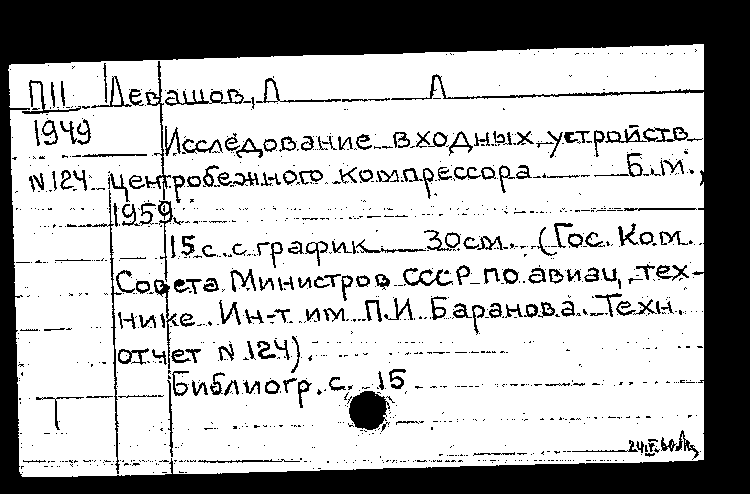 П11 Левашов, Л Л
1949 Исследование входных устройств
N124 центробежного компрессора Б.м.,
1959.
15 с. с график. 30см. (Гос. Ком.
Совета Министров СССР по авиац. тех-
нике. Ин-т им П.И. Баранова. Техн.
отчет N 124).
Библиогр. с. 15